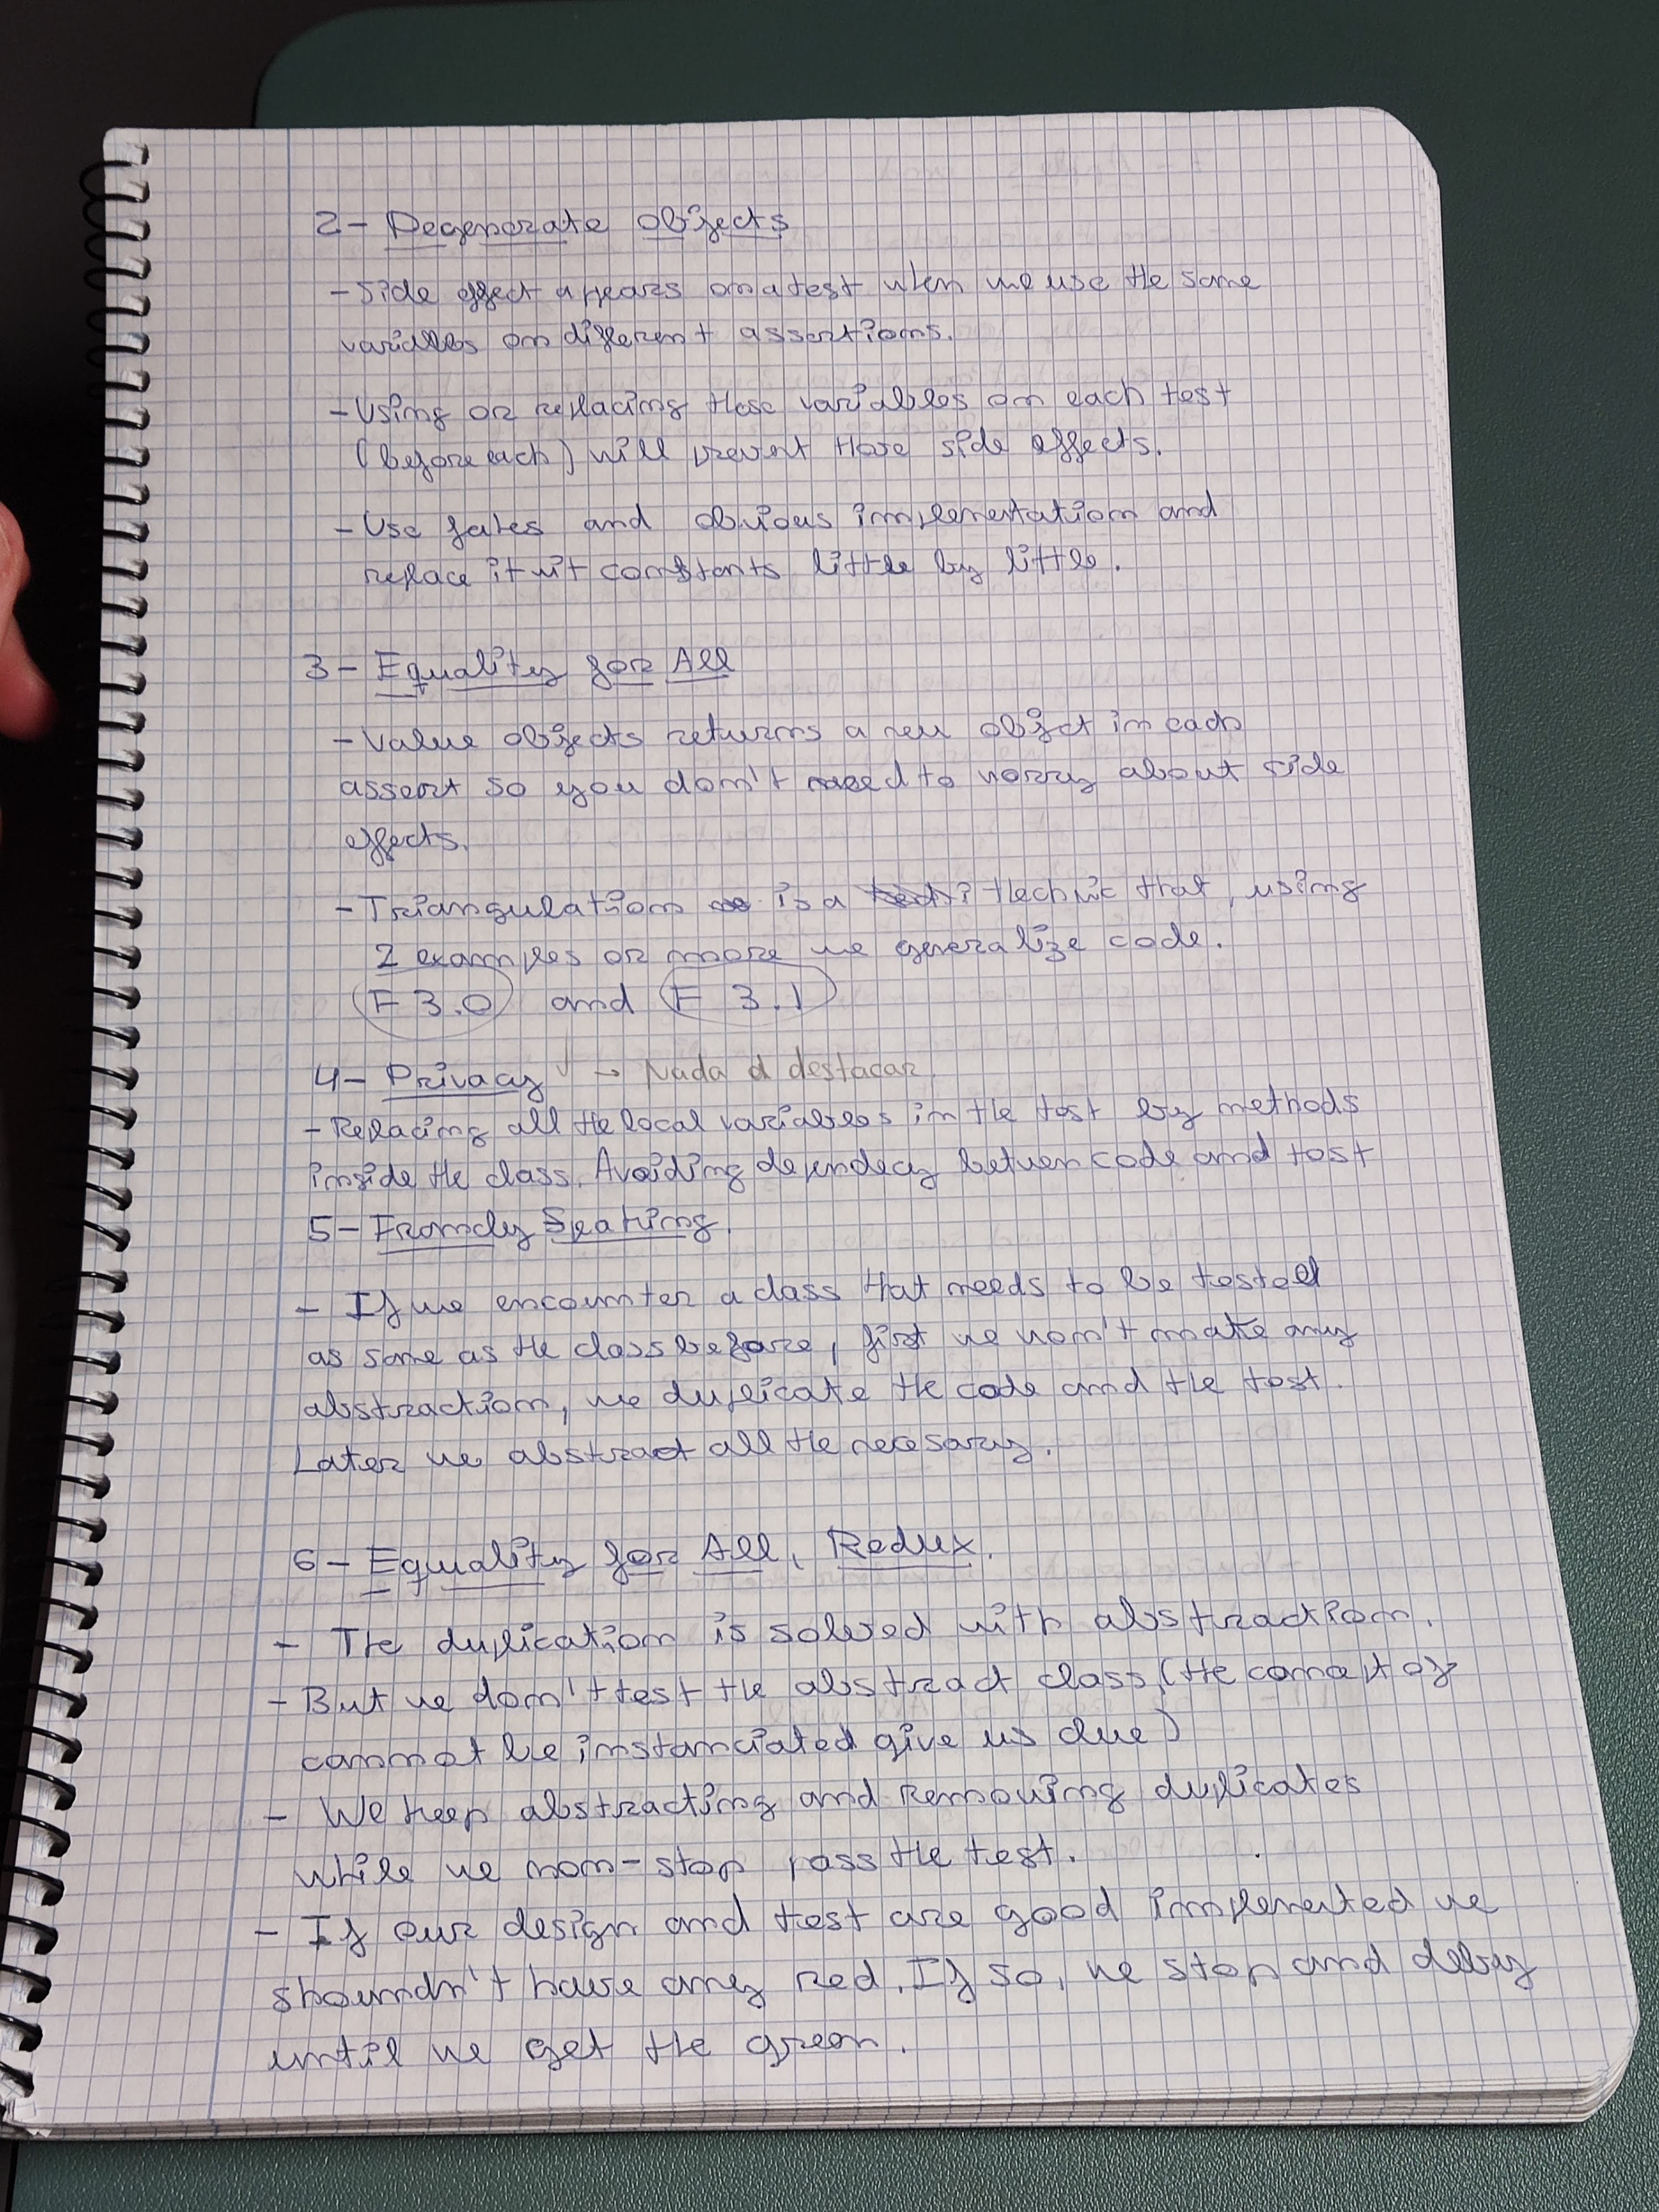 2- Degenerate objects
- Side effect appears on a test when we use the same
variables on different assertions.
- Using or replacing those variables on each test
(before each) will prevent those side effects.
- Use fakes and obvious implementation and
replace it wit constants little by little.
3- Equality for All
- Value objects returns a new object in each
assert so you don't need to worry about side
effects.
- Triangulation is a technic that, using
2 examples or more we generalize code.
F 3.0 and F 3.1
4- Privacy ✓ → Nada d destacar.
- Replacing all the local variables in the test by methods
inside the class. Avoiding dependecy betwen code and test
5- Francly Speaking.
- If we encounter a class that needs to be tested
as same as the class before, first we won't make any
abstraction, we duplicate the code and the test.
Later we abstract all the necesary.
6- Equality for All, Redux.
- The duplication is solved with abstraction.
- But we don't test the abstract class, (the concept of
cannot be instanciated give us clue)
- We keep abstracting and removing duplicates
while we non-stop pass the test.
- If our design and test are good implemented we
shoundn't have any red. If so, we stop and debug
until we get the green.